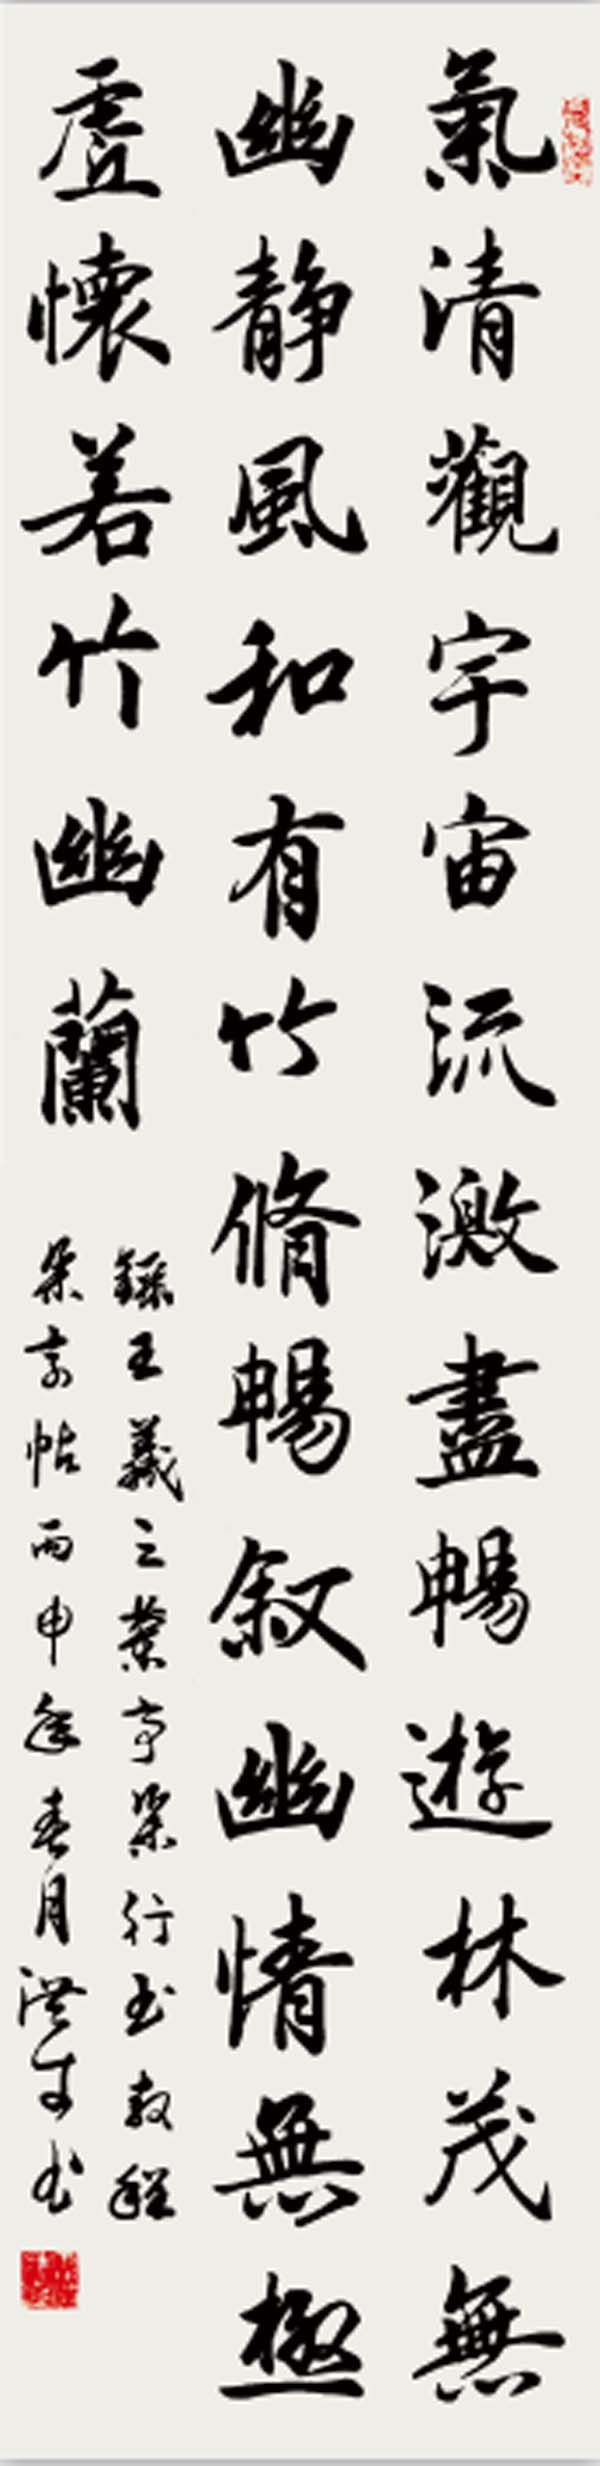 氣清觀宇宙流激盡暢遊林茂無
幽静風和有竹脩暢叙幽情無極
虚懷若竹幽蘭
錄王羲之蘭亭集行书教程
集字帖丙申年春月洪生书